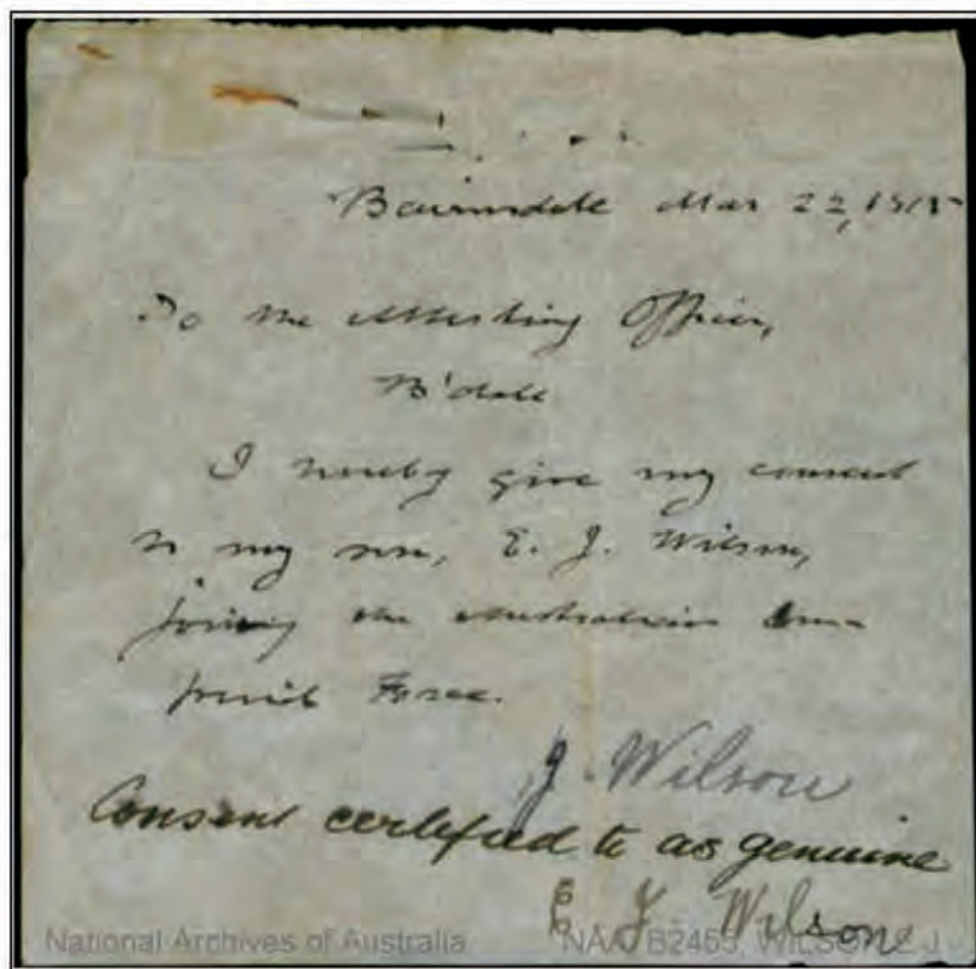 Bairnsdale Mar 22, 1915
To the Attesting Officer,
B'dale
I hereby give my consent
to my son, E. J. Wilson,
joining the Australian Im-
perial Force.
J. Wilson
Consent certified to as genuine
E J Wilson
National Archives of Australia NAA: B2455, WILSON E J